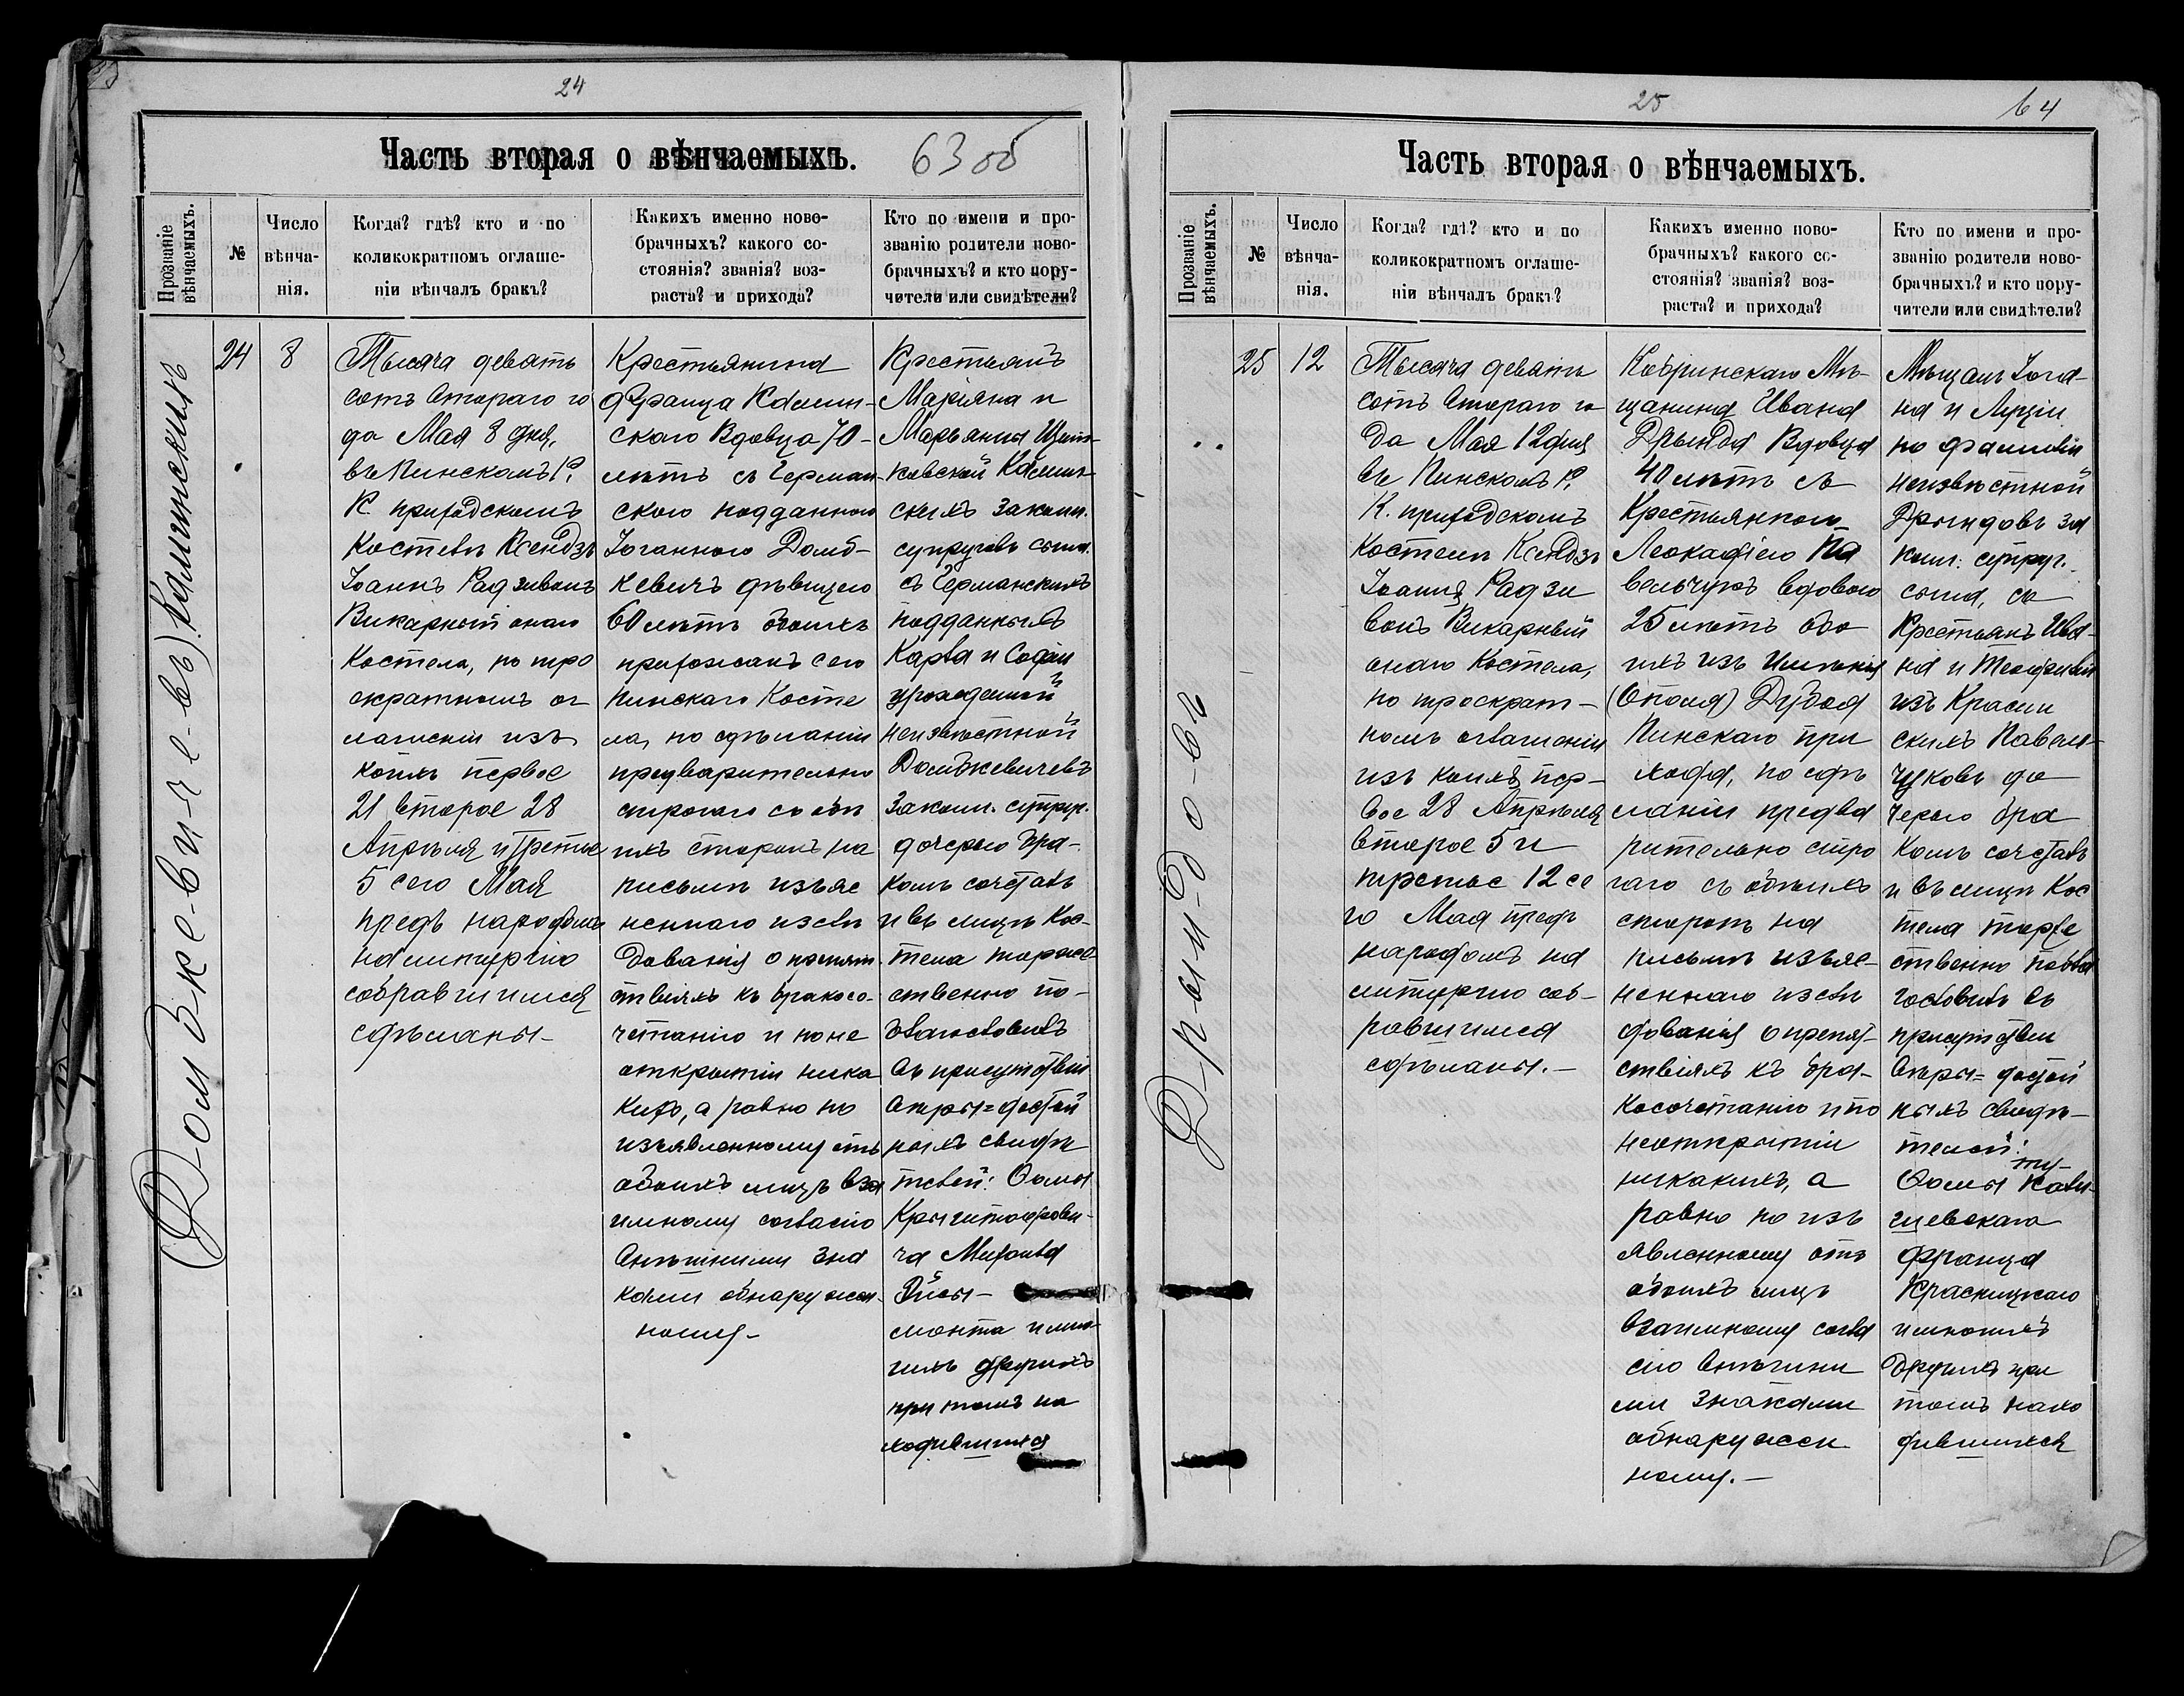 24
Часть вторая о вѣнчаемыхъ.
63 об
Прозваніе вѣнчаемыхъ.
№
Число вѣнча-
нія.
Когда? гдѣ? кто и по
коликократномъ оглаше-
ніи вѣнчалъ бракъ?
Какихъ именно ново-
брачныхъ? какого со-
стоянія? званія? воз-
раста? и прихода?
Кто по имени и про-
званію родители ново-
брачныхъ? и кто пору-
чители или свидѣтели?
24
8
Тысяча девять
сотъ втораго го
да Мая 8 дня,
въ Пинскомъ Р.
К. приходскомъ
Костелѣ Ксендзъ
Іоаннъ Радзивонъ
Викарный онаго
Костела, по тро
екратномъ ог
лашеніи изъ
коихъ первое
21 второе 28
Апрѣля и третье
5 сего Мая
предъ народомъ
на литургію
собравшимся
сдѣланы-
Крестьянина
Франца Калин-
скаго Вдовца 70-
лѣтъ съ Герман-
ского подданною
Іоганною Домб-
кевичъ дѣвицею
60 лѣтъ обоихъ
прихожанъ сего
Пинскаго Косте
ла, по сдѣланіи
предварительно
строгаго съ обѣ
ихъ сторонъ на
письмѣ изъяс
неннаго изслѣ
дованія о препят
ствіяхъ къ бракосо-
четанію и по не
открытіи ника
кихъ, а равно по
изъявленному отъ
обоихъ лицъ вза
имному согласію
Внѣшними зна
ками обнаружен-
ному-
Крестьянъ
Маріяна и
Марьянны
Калин-
скихъ закон.
супруговъ сына
съ Германскихъ
подданныхъ
Карла и Софіи
урожденной
неизвѣстной
Домбкевичевъ
Закон. супруг.
дочерью бра-
комъ сочеталъ
и въ лицѣ Кос-
тела торже
ственно по-
благословилъ
въ присутствіи
вѣры=достой
ныхъ свидѣ
телей: Ѳомы
Крыштофови-
ча Михаила
монта и мно-
гихъ другихъ
при томъ на
ходившихся
25
64
Часть вторая о вѣнчаемыхъ.
Прозваніе вѣнчаемыхъ.
№
Число вѣнча-
нія.
Когда? гдѣ? кто и по
коликократномъ оглаше-
ніи вѣнчалъ бракъ?
Какихъ именно ново-
брачныхъ? какого со-
стоянія? званія? воз-
раста? и прихода?
Кто по имени и про-
званію родители ново-
брачныхъ? и кто пору-
чители или свидѣтели?
25
12
Тысяча девять
сотъ втораго го
да Мая 12 дня
въ Пинскомъ Р.
К. приходскомъ
Костелѣ Ксендзъ
Іоаннъ Радзи
вонъ Викарный
онаго Костела,
по троекрат-
номъ оглашеніи
изъ коихъ пер-
вое 28 Апрѣля
второе 5 и
третье 12 се
го Мая предъ
народомъ на
литургію соб-
равшимся
сдѣланы.-
Кобринскаго Мѣ-
щанина Ивана
Дрында Вдовца
40 лѣтъ съ
Крестьянкою
Леокадіею Па
вельчукъ вдовою
25 лѣтъ обо
ихъ изъ Имѣнія
(Ополя) Дубоя
Пинскаго при
хода, по сдѣ
ланіи предва
рительно стро
гаго съ обѣихъ
сторонъ на
письмѣ изъяс-
неннаго изслѣ
дованія о препят-
ствіяхъ къ бра-
косочетанію и по
неоткрытіи
никакихъ, а
равно по изъ
явленному отъ
обоихъ лицъ
взаимному согла
сію внѣшни
ми знаками
обнаружен-
ному.-
Мѣщанъ
и Луціи
по фамиліи
неизвѣстной
Дрындовъ за
кон. супруг.
сына, съ
Крестьянъ Ива-
на и Теофиліи
изъ Красин
скихъ Павель-
чуковъ до
черью бра
комъ сочеталъ
и въ лицѣ Кос
тела торже
ственно побла
гословилъ въ
присутствіи
вѣры=достой
ныхъ свидѣ-
телей:
Ѳомы
Франца
Красницкаго
и многихъ
другихъ при
томъ нахо
дившихся
Домбкевичевъ) Калинскихъ
Дрындовъ